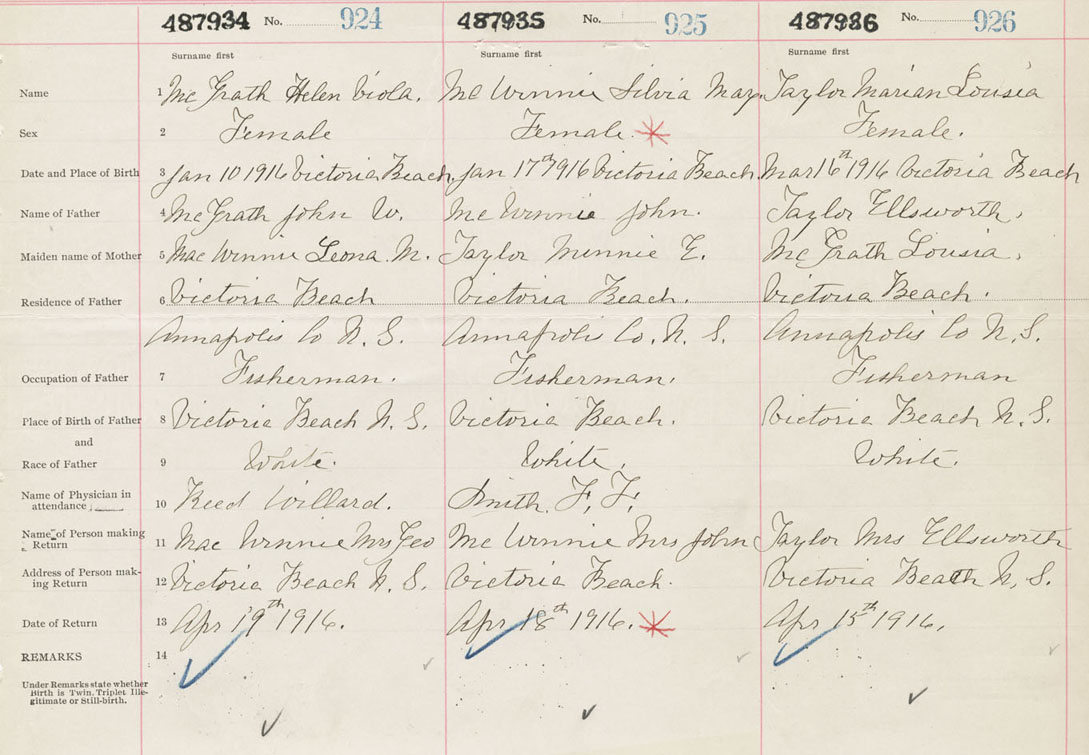 487934 No. 924 487935 No. 925 487936 No. 926
Surname first Surname first Surname first
Name 1 Mc Grath Helen Viola. Mc Winnie Silvia May. Taylor Marian Lousia
Sex 2 Female Female. Female.
Date and Place of Birth 3 Jan 10 1916 Victoria Beach. Jan 17th 1916 Victoria Beach. Mar 16th 1916 Victoria Beach
Name of Father 4 Mc Grath John W. Mc Winnie John. Taylor Ellsworth.
Maiden name of Mother 5 Mac Winnie Leona. M. Taylor Minnie E. Mc Grath Lousia.
Residence of Father 6 Victoria Beach Victoria Beach. Victoria Beach.
Annapolis Co N. S. Annapolis Co. N. S. Annapolis Co N. S.
Occupation of Father 7 Fisherman. Fisherman. Fisherman
Place of Birth of Father 8 Victoria Beach N. S. Victoria Beach. Victoria Beach N. S.
and
Race of Father 9 White. White. White.
Name of Physician in
attendance 10 Reed Willard. Smith. F. F.
Name of Person making
Return 11 Mac Winnie Mrs Geo Mc Winnie Mrs John Taylor Mrs Ellsworth
Address of Person mak-
ing Return 12 Victoria Beach N. S. Victoria Beach. Victoria Beach N. S.
Date of Return 13 Apr 19th 1916. Apr 18th 1916. Apr 15th 1916.
REMARKS 14
Under Remarks state whether
Birth is Twin, Triplet Ille-
gitimate or Still-birth.